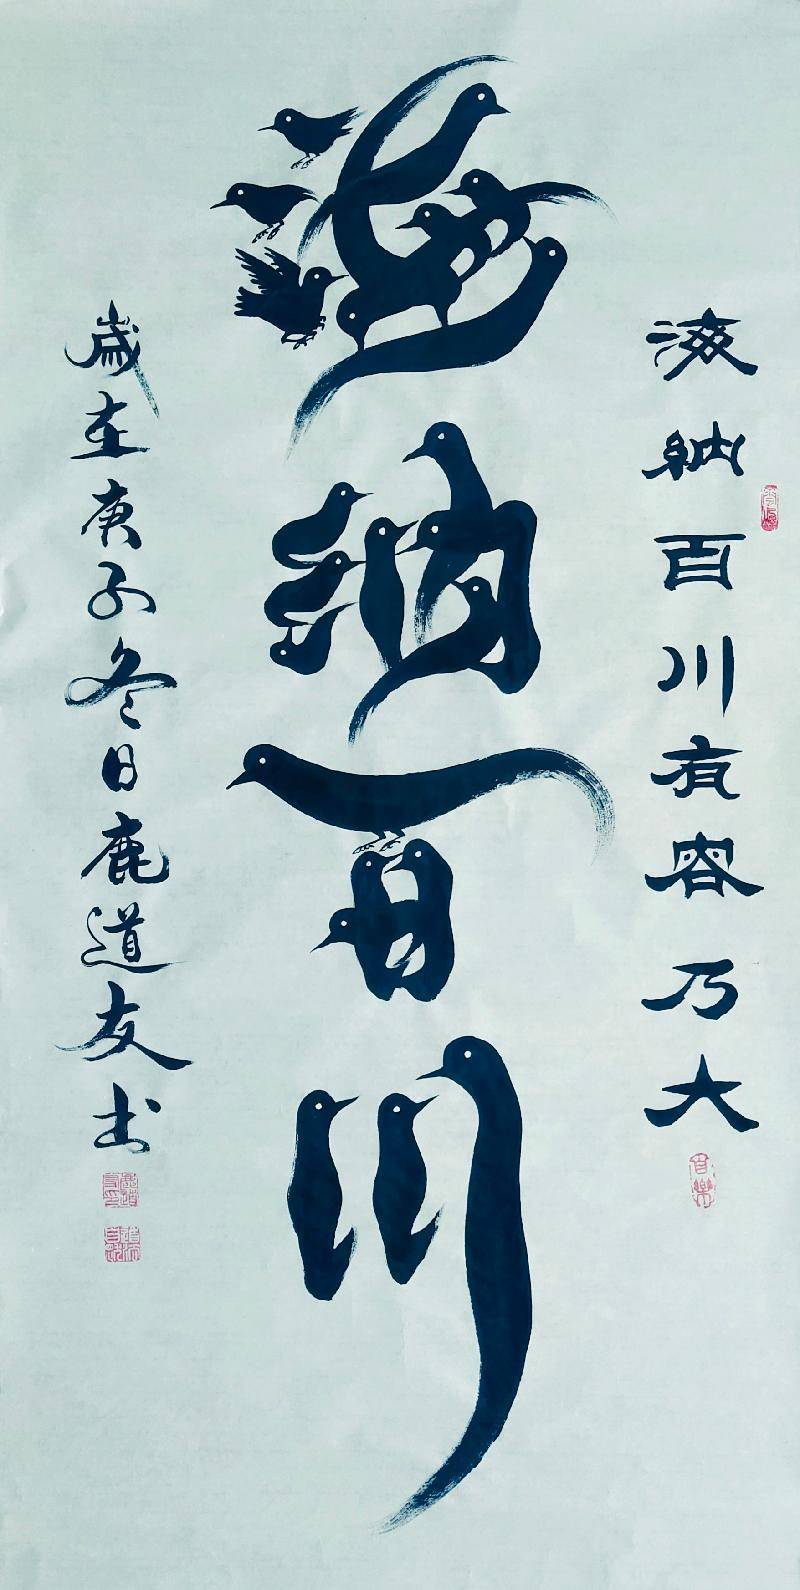 海納百川有容乃大
海納百川
歲在庚子冬日鹿道友书